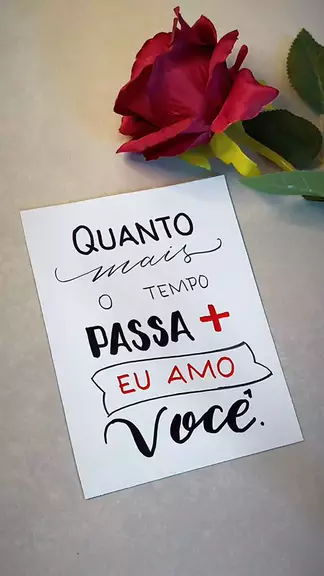 QUANTO
mais
O TEMPO
PASSA +
EU AMO
Você.